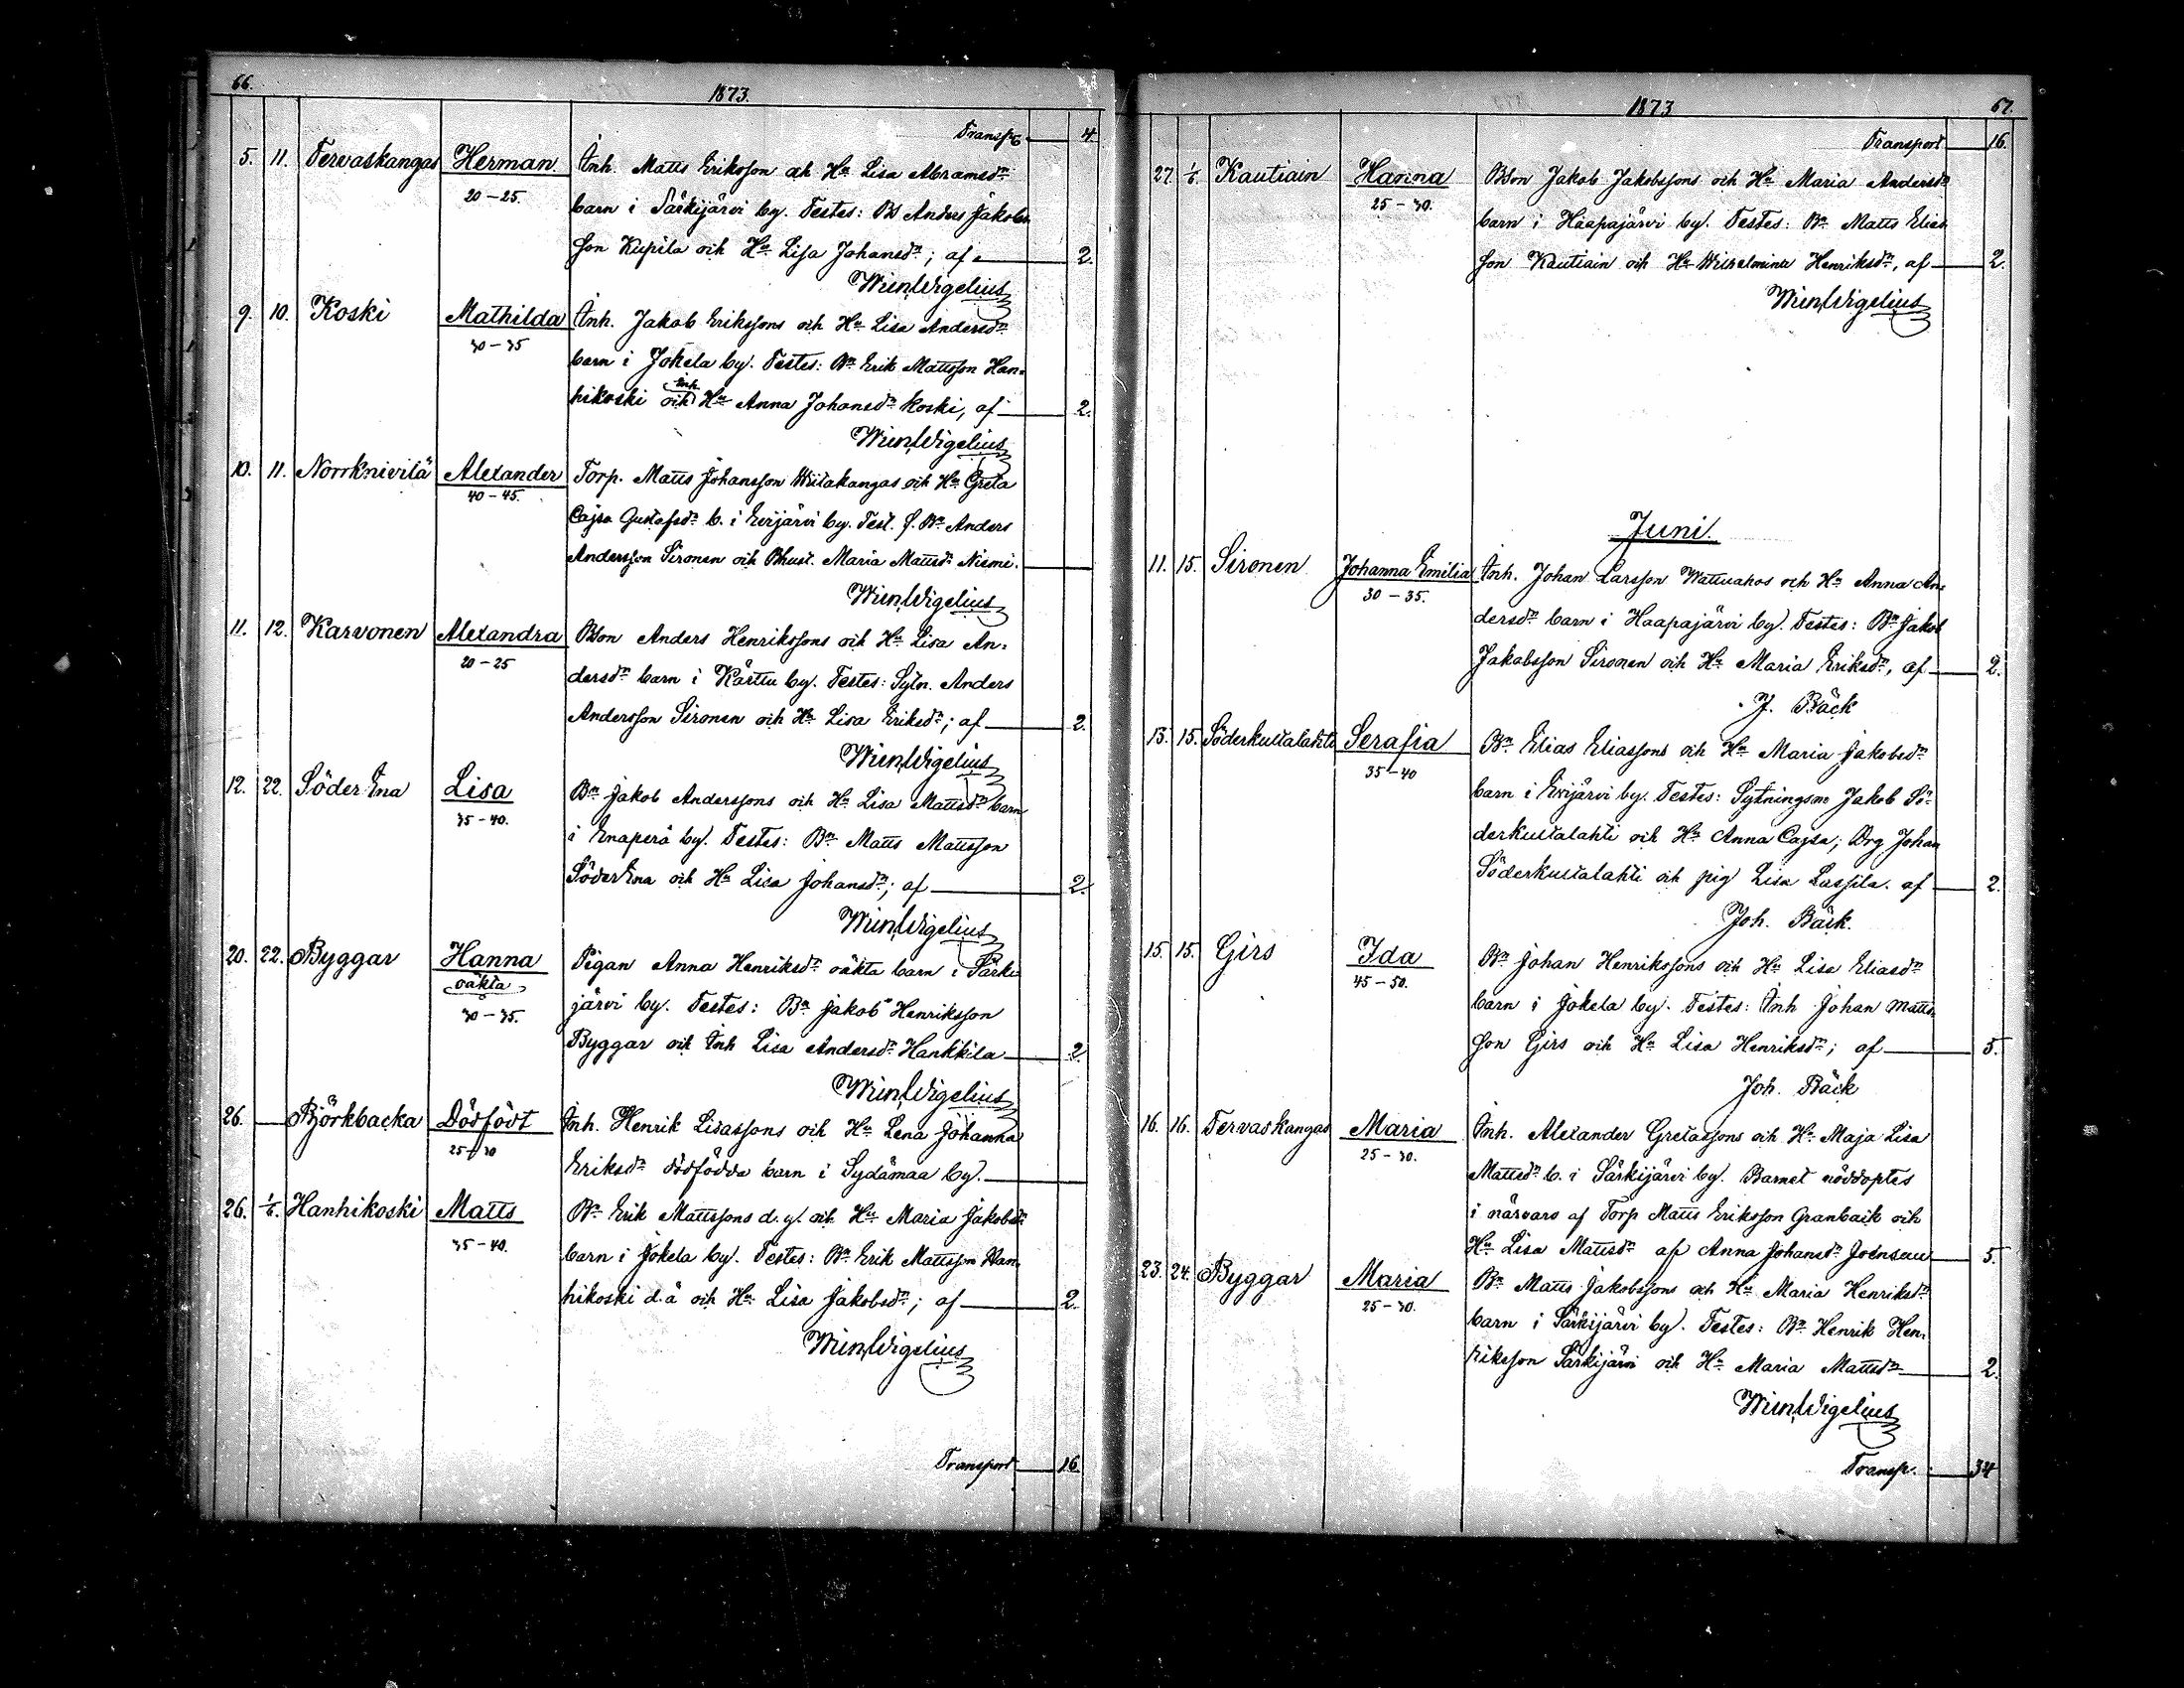 66.
1873.
Transp. 4.
5. 11. Tervaskangas Herman Inh. Matts Eriksson och Hu Lisa Abramsdr
20–25. barn i Särkijärvi by. Testes: BS Anders Jakobs
son Kupila och Hu Lisa Johansdr; af 2.
WmWigelius
9. 10. Koski Mathilda Inh. Jakob Erikssons och Hu Lisa Andersdr
30–35 barn i Jokela by. Testes: Bn Erik Mattsson Han-
hikoski och Inh Hu Anna Johansdr Koski, af 2.
WmWigelius
10. 11. Norrknivilä Alexander Torp. Matts Johansson Wiitakangas och Hu Greta
40–45. Cajsa Gustafsdr b. i Evijärvi by. Test. f. Bn Anders
Andersson Sironen och Bhust. Maria Mattsdr Niemi.
WmWigelius
11. 12. Karvonen Alexandra BSon Anders Henrikssons och Hu Lisa An-
20–25 dersdr barn i Kärttu by. Testes: Sytn. Anders
Andersson Sironen och Hu Lisa Eriksdr; af 2.
WmWigelius
12. 22. Söder Ena Lisa Bn Jakob Anderssons och Hu Lisa Mattsdr barn
35–40. i Enaperä by. Testes: Bn Matts Mattsson
SöderEna och Hu Lisa Johansdr; af 2.
WmWigelius
20. 22. Byggar Hanna Pigan Anna Henriksdr oäkta barn i Särki
oäkta
30–35. järvi by. Testes: Bn Jakob Henriksson
Byggar och Inh Lisa Andersdr Hankkila 2.
WmWigelius
26. — Björkbacka Dödfödt Inh. Henrik Lisassons och Hu Lena Johanna
25–30 Eriksdr dödfödda barn i Sydämaa by.
26. 1/6. Hanhikoski Matts Bn Erik Mattssons d.y. och Hu Maria Jakobsdr
35–40. barn i Jokela by. Testes: Bn Erik Mattsson Han-
hikoski d.ä och Hu Lisa Jakobsdr; af 2.
WmWigelius
Transport 16.
1873
67.
Transport 16.
27. 1/6. Kautiain Hanna BSon Jakob Jakobssons och Hu Maria Andersdr
25–30. barn i Haapajärvi by. Testes: Bn Matts Elias
son Kautiain och Hu Wilhelmina Henriksdr, af 2.
WmWigelius
Juni.
11. 15. Sironen Johanna Emilia Inh. Johan Larsson Wattuahos och Hu Anna An-
30–35. dersdr barn i Haapajärvi by. Testes: Bn Jakob
Jakobsson Sironen och Hu Maria Eriksdr, af 2.
J. Bäck
13. 15. Söderkultalahti Serafia Bn Elias Eliassons och Hu Maria Jakobsdr
35–40 barn i Evijärvi by. Testes: Sytningsm Jakob Sö-
derkultalahti och Hu Anna Cajsa; Drg Johan
Söderkultalahti och pig Lisa Lassila. af 2.
Joh. Bäck.
15. 15. Girs Ida Bn Johan Henrikssons och Hu Lisa Eliasdr
45–50. barn i Jokela by. Testes: Inh Johan Matts-
son Girs och Hu Lisa Henriksdr; af 5.
Joh. Bäck
16. 16. Tervaskangas Maria Inh. Alexander Gretassons och Hu Maja Lisa
25–30. Mattsdr b. i Särkijärvi by. Barnet nöddoptes
i närvaro af Torp Matts Eriksson Granback och
Hu Lisa Mattsdr af Anna Johansdr Joensuu 5.
23. 24. Byggar Maria Bn Matts Jakobssons och Hu Maria Henriksdr
25–30. barn i Särkijärvi by. Testes: Bn Henrik Hen-
riksson Särkijärvi och Hu Maria Mattsdr 2.
WmWigelius
Transp. 34